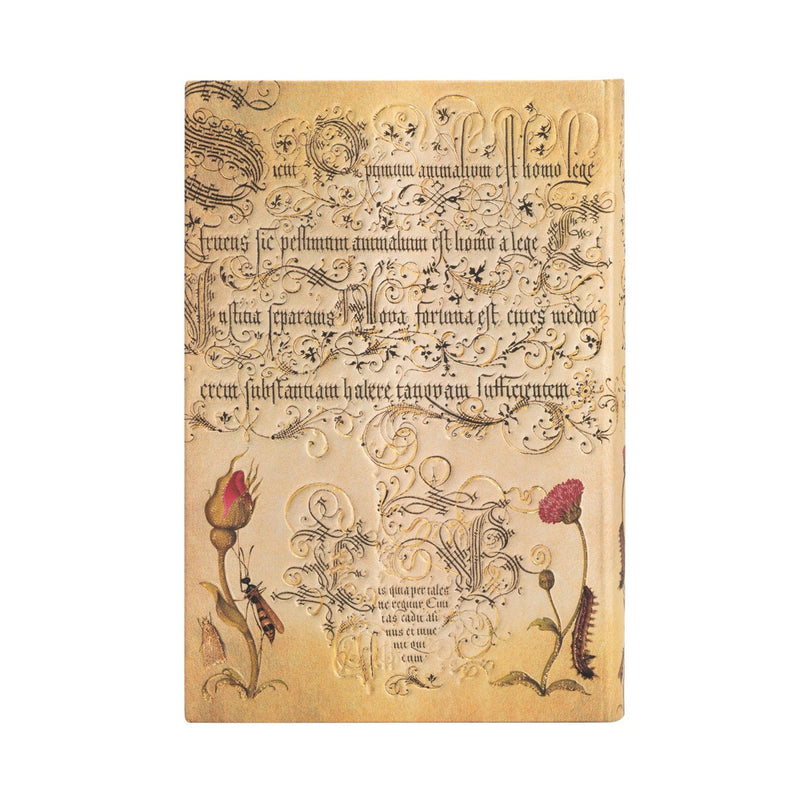 Sicut Optimum animalium est homo lege
fruens sic pessimum animalium est homo a lege Et
Iustitia separatus Nova fortuna est cives medio
crem substantiam habere tanquam sufficientem
Et is quia per tales Be
ne regitur Civi
tas